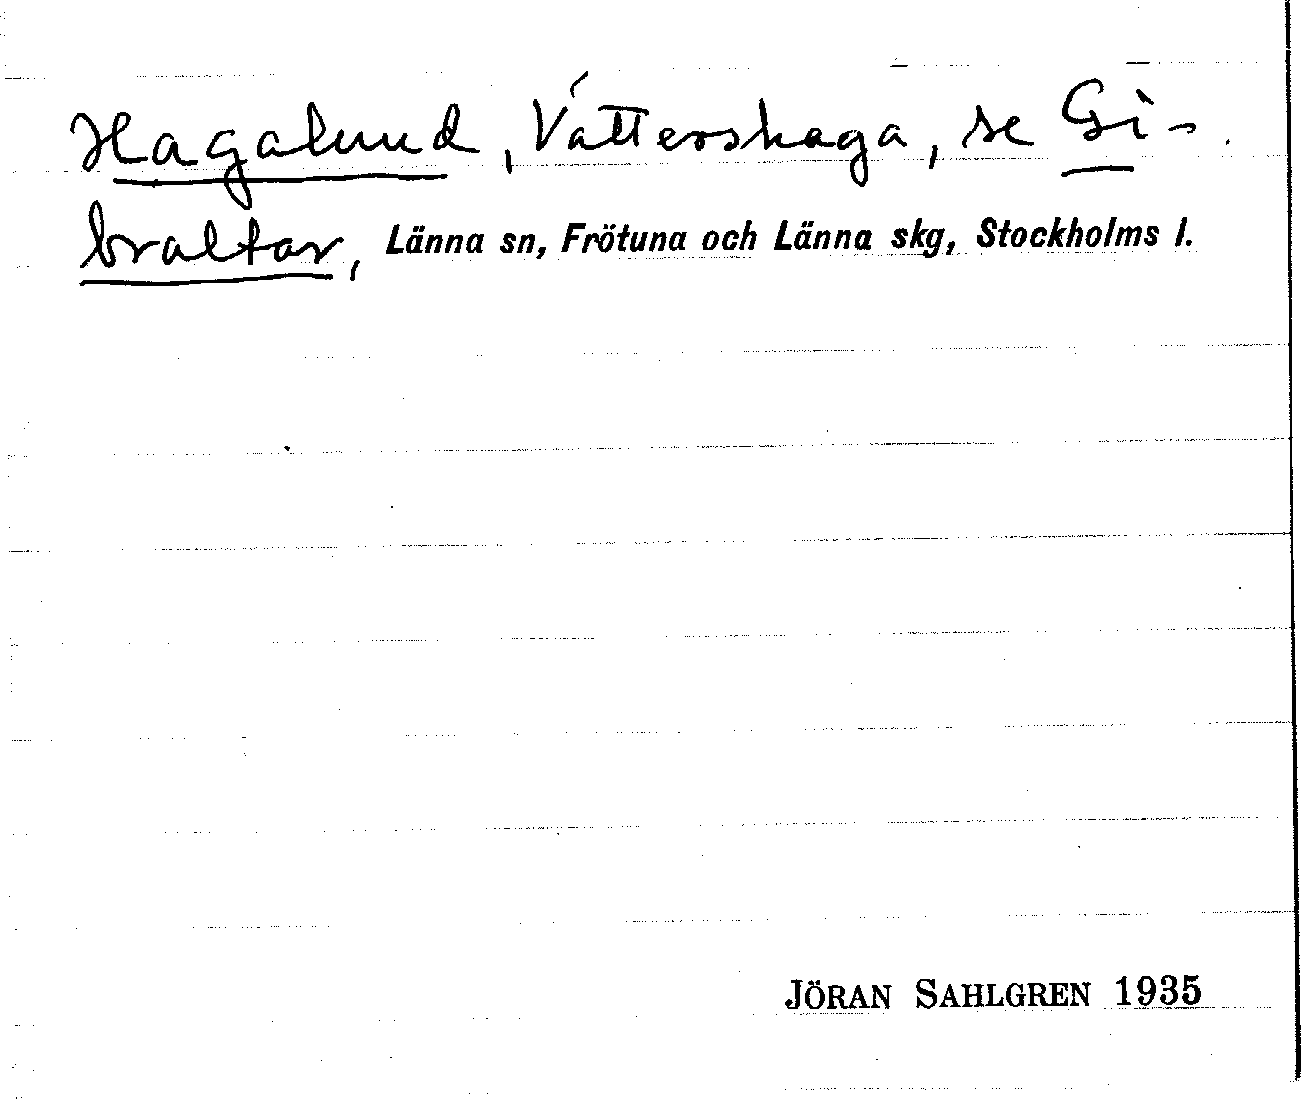 Hagalund, Vättershaga, se Gi-
braltar, Länna sn, Frötuna och Länna skg, Stockholms l.
JÖRAN SAHLGREN 1935